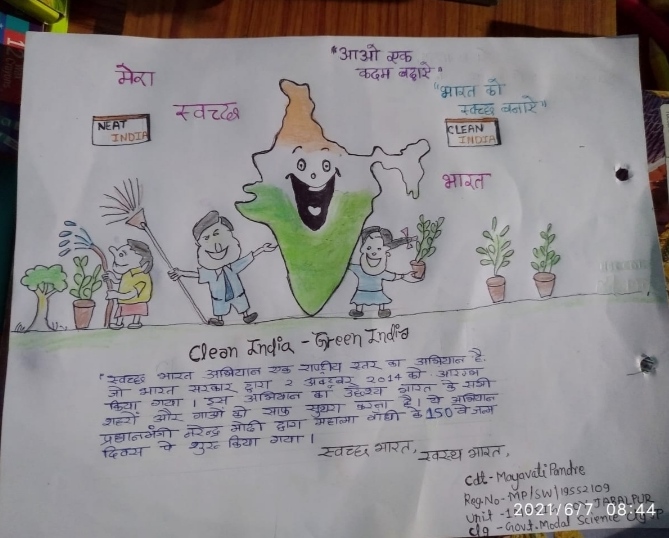 मेरा
स्वच्छ
"आओ एक
कदम बढ़ाऐ"
"भारत को
स्वच्छ बनाऐ"
NEAT
INDIA
CLEAN
INDIA
भारत
Clean India - Green India
"स्वच्छ भारत अभियान एक राष्ट्रीय स्तर का अभियान है.
जो भारत सरकार द्वारा 2 अक्टूबर 2014 को आरम्भ
किया गया। इस अभियान का उद्देश्य भारत के सभी
शहरों और गाओं को साफ सुथरा करना है। ये अभियान
प्रधानमंत्री नरेन्द्र मोदी द्वारा महात्मा गाँधी के 150 वे जन्म
दिवस पे शुरू किया गया।
स्वच्छ भारत, स्वस्थ भारत,
Cdt- Mayavati Pandre
Reg.No- MP/SW/19552109
Unit - JABALPUR
Clg - Govt. Modal Science Clg
2021/6/7 08:44